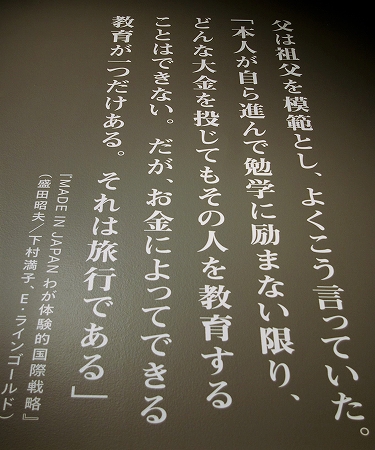 父は祖父を模範とし、よくこう言っていた。
「本人が自ら進んで勉学に励まない限り、
どんな大金を投じてもその人を教育する
ことはできない。だが、お金によってできる
教育が一つだけある。それは旅行である」
『MADE IN JAPAN わが体験的国際戦略』
（盛田昭夫／下村満子、E・ラインゴールド）